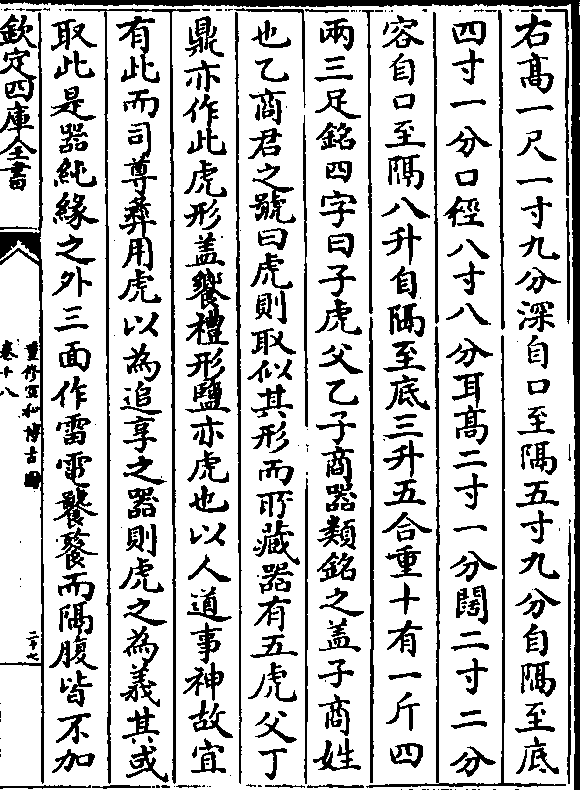 右髙一尺一寸九分深自口至隔五寸九分自隔至底
四寸一分口徑八寸八分耳髙二寸一分闊二寸二分
容自口至隔八升自隔至底三升五合重十有一斤四
兩三足銘四字曰子虎父乙子商器類銘之盖子商姓
也乙商君之號曰虎則取似其形而所藏器有五虎父丁
鼎亦作此虎形盖饗禮形鹽亦虎也以人道事神故宜
有此而司尊彛用虎以為追享之器則虎之為義其或
取此是器純縁之外三面作雷電饕餮而隔腹皆不加
欽定四庫全書
重修宣和博古圖
卷十八
二十七